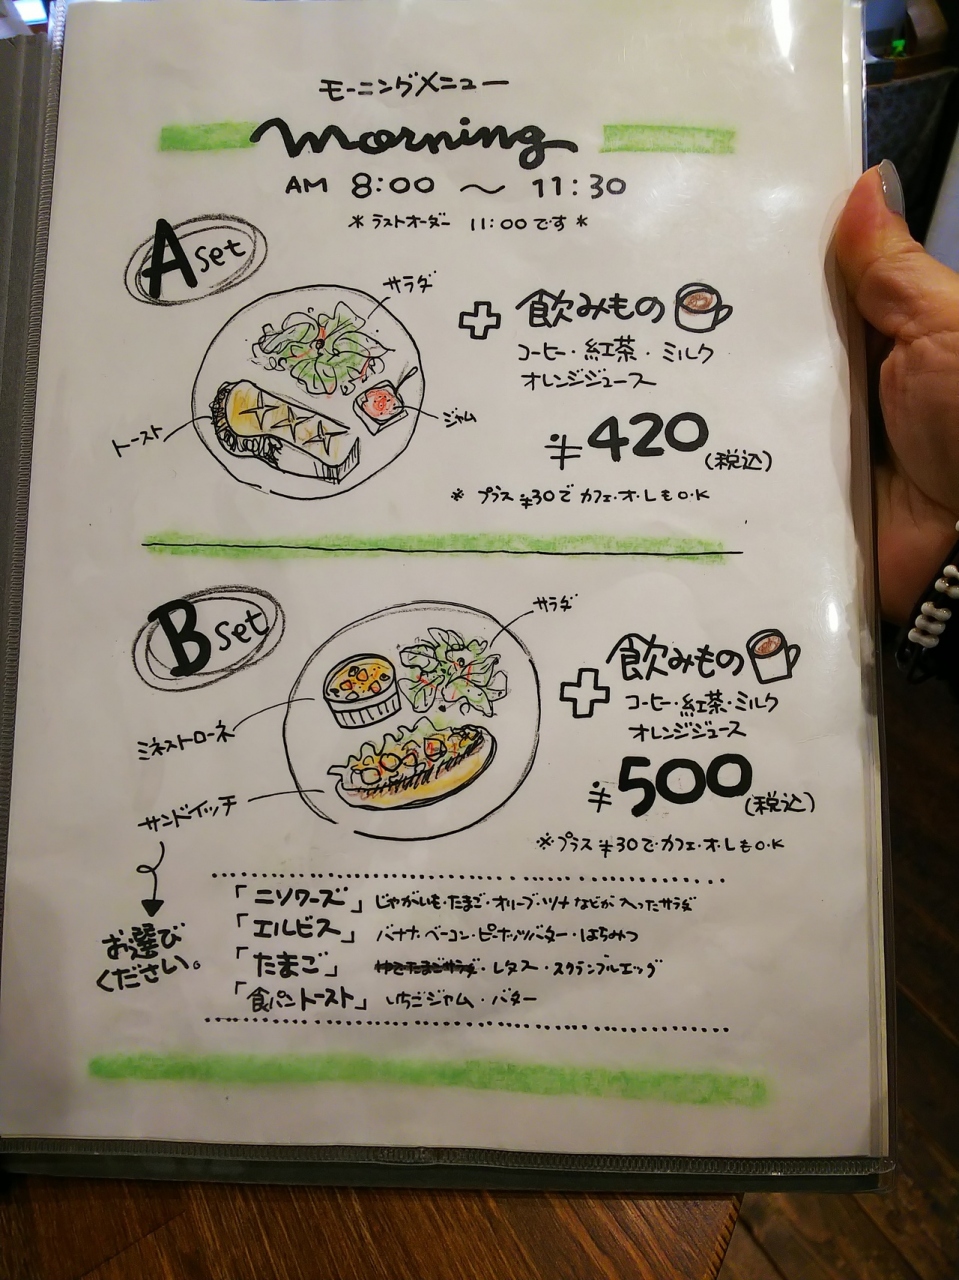 モーニングメニュー
Morning
AM 8:00 〜 11:30
＊ラストオーダー 11:00です＊
A set
サラダ
トースト
ジャム
＋ 飲みもの
コーヒー・紅茶・ミルク
オレンジジュース
¥420(税込)
※ プラス¥30で カフェ・オ・レもO・K
B set
サラダ
ミネストローネ
サンドイッチ
＋ 飲みもの
コーヒー・紅茶・ミルク
オレンジジュース
¥500(税込)
※プラス¥30で カフェ・オ・レもO・K
お選び
ください。
「ニソワーズ」 じゃがいも・たまご・オリーブ・ツナなどが入ったサラダ
「エルビス」 バナナ・ベーコン・ピーナッツバター・はちみつ
「たまご」 ・レタス・スクランブルエッグ
「食パントースト」 いちごジャム・バター